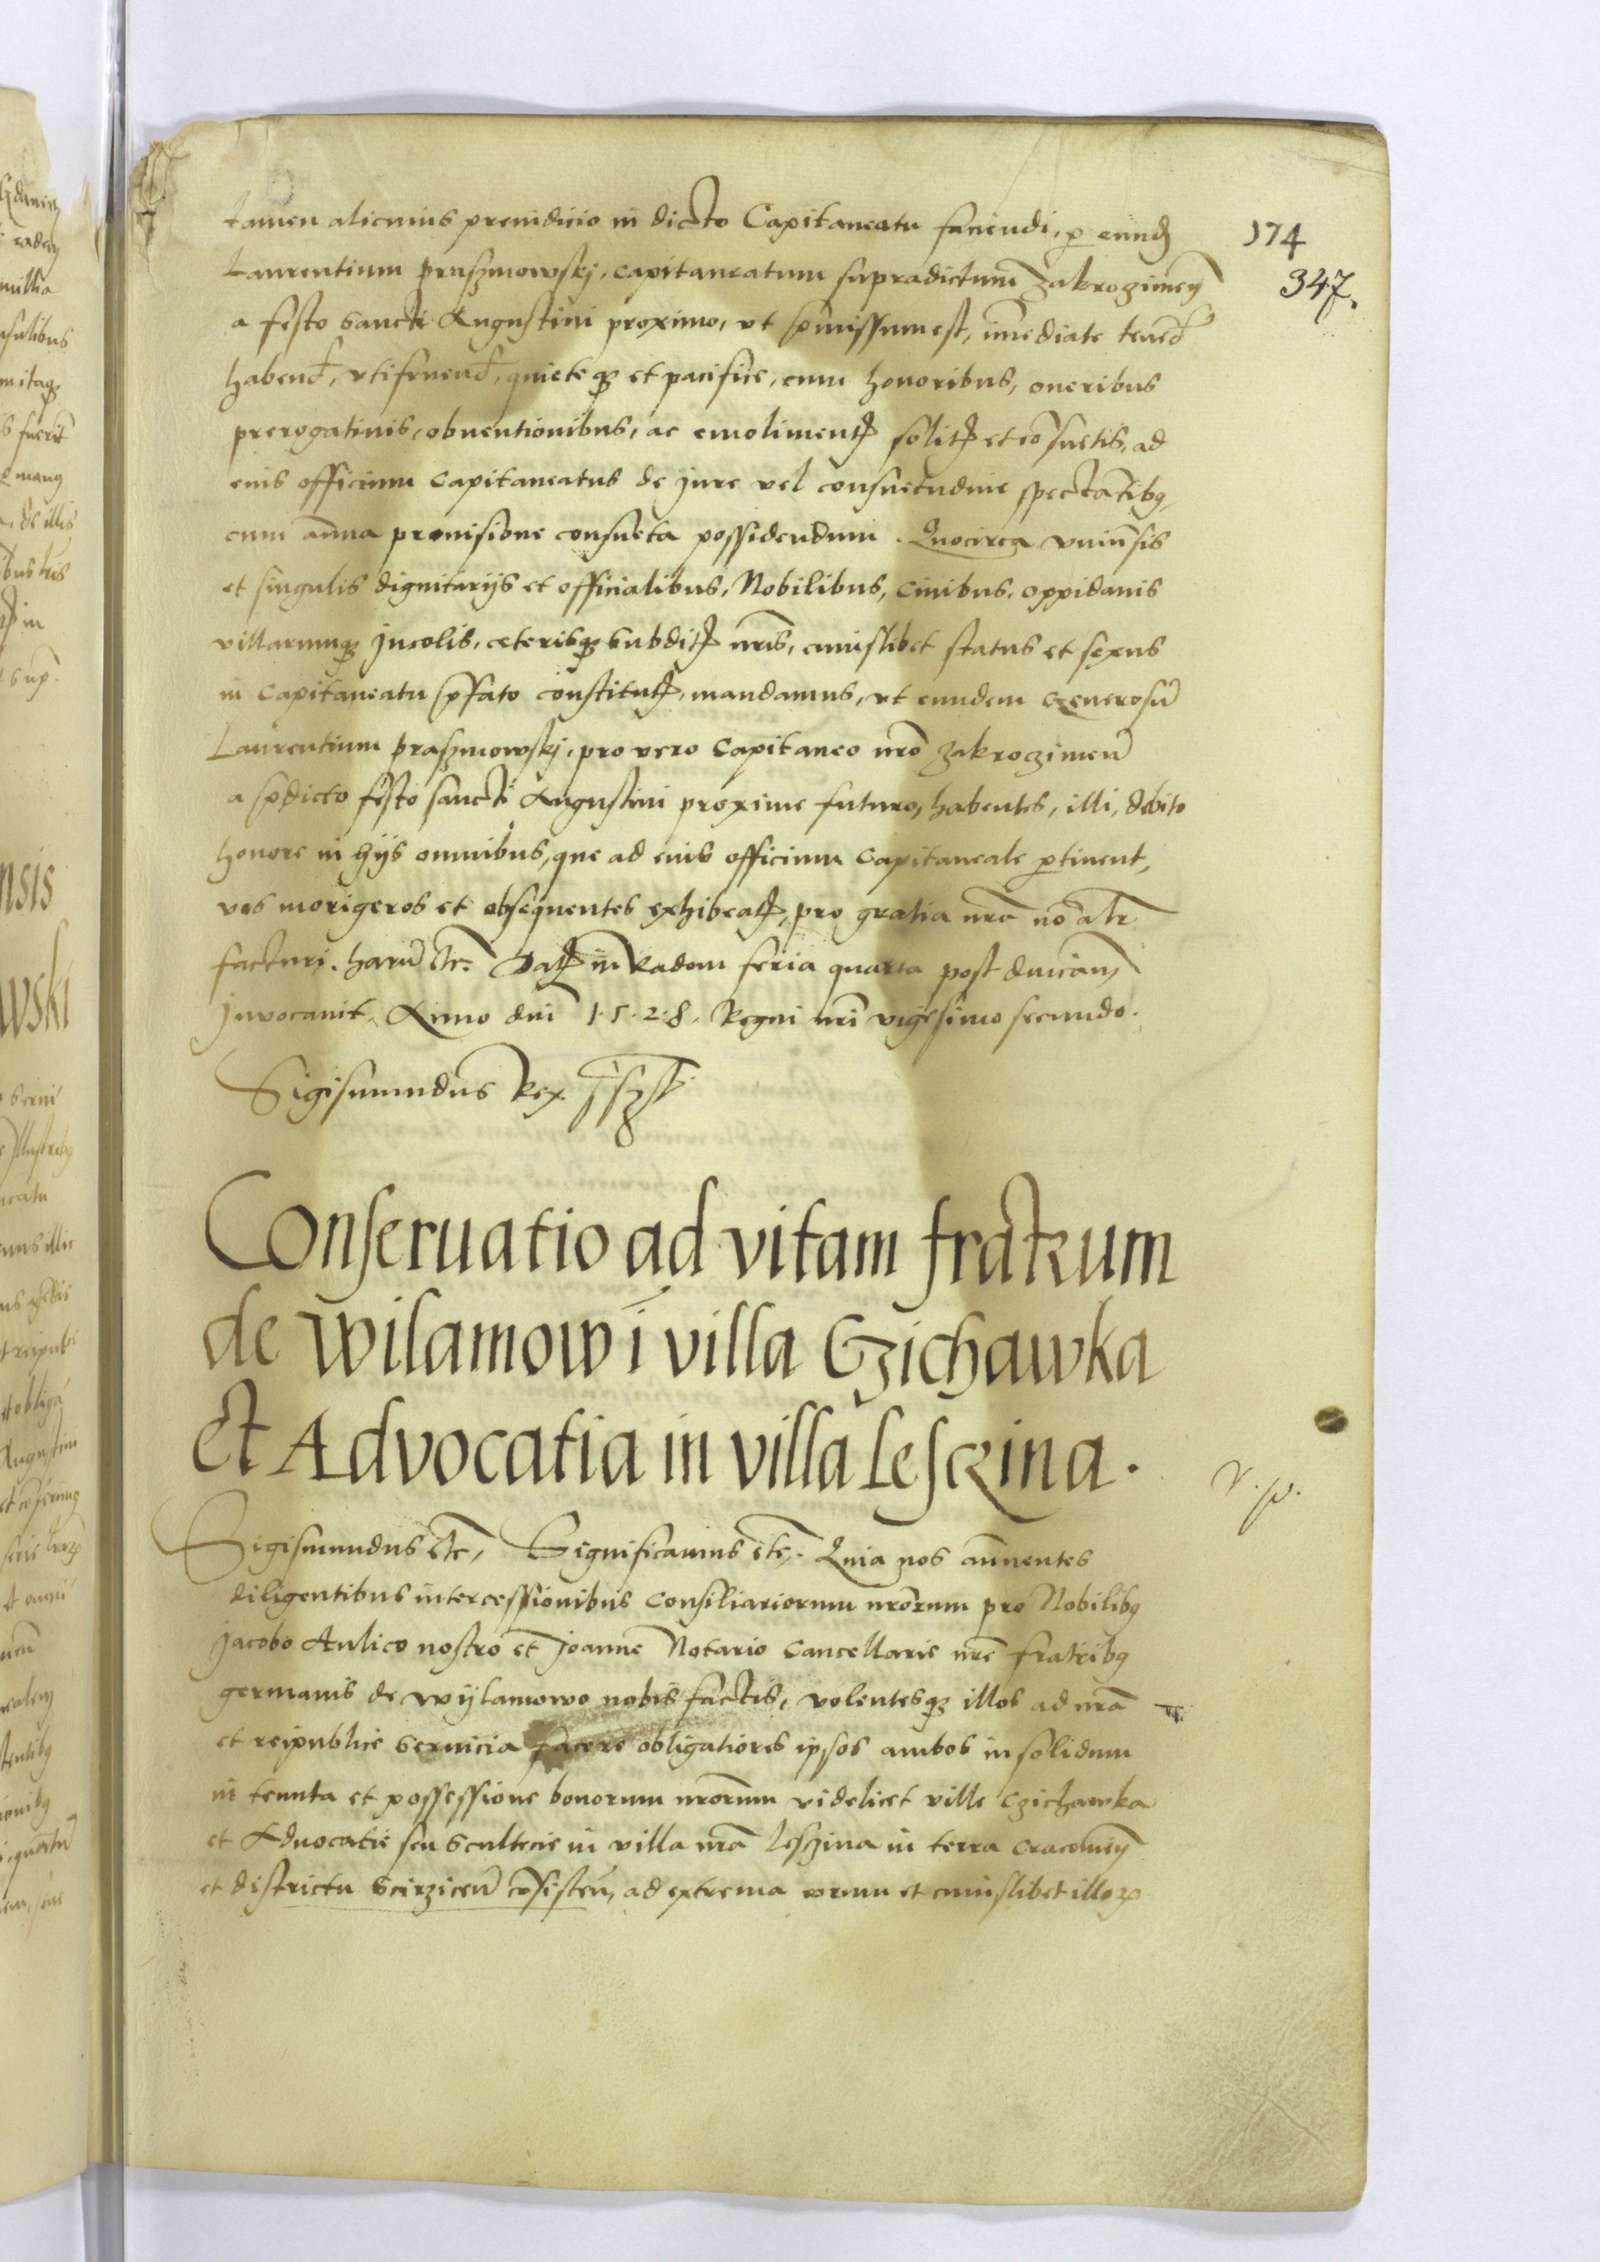 174
347.
tamen alicuius preiudicio in dicto Capitaneatu faciendi, p eund
Laurentium praszmowskj, capitaneatum supradictum zakrozimen
a festo sancti Augustini proximo, vt pmissum est, imediate tened
habend, vtifruend, quieteq et pacifice, cum honoribus, oneribus
prerogatiuis, obuentionibus, ac emoliment solit et cosuetis, ad
euis officium capitaneatus de jure vel consuetudine spectatibq,
cum anua prouisione consueta possidendum. Quocirca vniusis
et singulis dignitarijs et officialibus, Nobilibus, Ciuibus, oppidanis
villarumq jncolis, ceterisq subdit nris, cuiuslibet status et sexus
in capitaneatu pfato constitut, mandamus, vt eundem Generosu
Laurentium praszmowskj, pro vero Capitaneo nro zakrozimen
a pdicto festo sancti Augustini proxime futuro, habentes, illi, debito
honore in hijs omnibus, que ad euis officium Capitaneale ptinent,
vos morigeros et obsequentes exhibeat, pro gratia nra no alr
facturj. haru etc. Dat in Radom feria quarta post duicam
Jnuocauit, Anno dni 1.5.2.8. Regni nri vigesimo secundo.
Sigismundus Rex sszt
Conseruatio ad vitam fratrum
de Wilamow i villa Czichawka
Et Advocatia in villa Leszina.
v. p.
Sigismundus etc, Significamus etc. Quia nos anuentes
diligentibus intercessionibus consiliariorum nrorum pro Nobilibq
Jacobo Aulico nostro et Joanne Notario Cancellarie nre fratribq
germanis de wylamowo nobis factis, volentesq illos ad nra
et reipublice seruicia facere obligatiores ipsos ambos insolidum
in tenuta et possessione bonorum nrorum videlicet ville Czichawka
et Aduocatie seu scultecie in villa nra Leszina in terra Cracouien
et districtu Scirzicen cosisten, ad extrema eorum et cuiuslibet illor